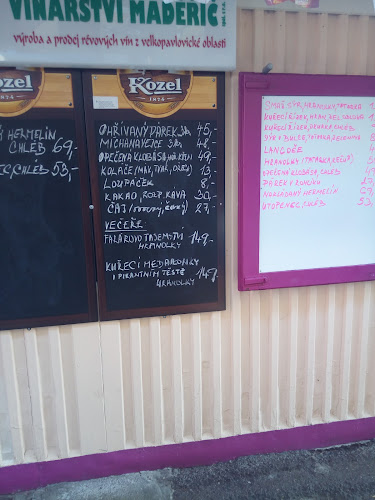 VINAŘSTVÍ MADĚŘIČ
výroba a prodej révových vín z velkopavlovické oblasti
Kozel
1874
HERMELÍN
CHLÉB 69,-
CHLÉB 53,-
Kozel
1874
OHŘÍVANÝ PÁREK 45,-
MÍCHANÁ VEJCE 48,-
OPEČENÁ KLOBÁSA 49,-
KOLÁČE (MÁK, TVAR, OŘECH) 13,-
LOUPÁČEK 8,-
KAKAO, ROZP. KÁVA 30,-
ČAJ 27,-
VEČEŘE
FARÁŘOVO TAJEMSTVÍ 149,-
HRANOLKY
KUŘECÍ MEDAILONKY
V PIKANTNÍM TĚSTĚ 149,-
HRANOLKY
SMAŽ. SÝR, HRANOLKY, TATARKA
KUŘECÍ ŘÍZEK
KUŘECÍ ŘÍZEK, CHLÉB
SÝR V BULCE
LANGOŠE
HRANOLKY (TATARKA, KEČUP)
OPEČENÁ KLOBÁSA, CHLÉB
PÁREK V ROHLÍKU
NAKLÁDANÝ HERMELÍN
UTOPENEC, CHLÉB 53